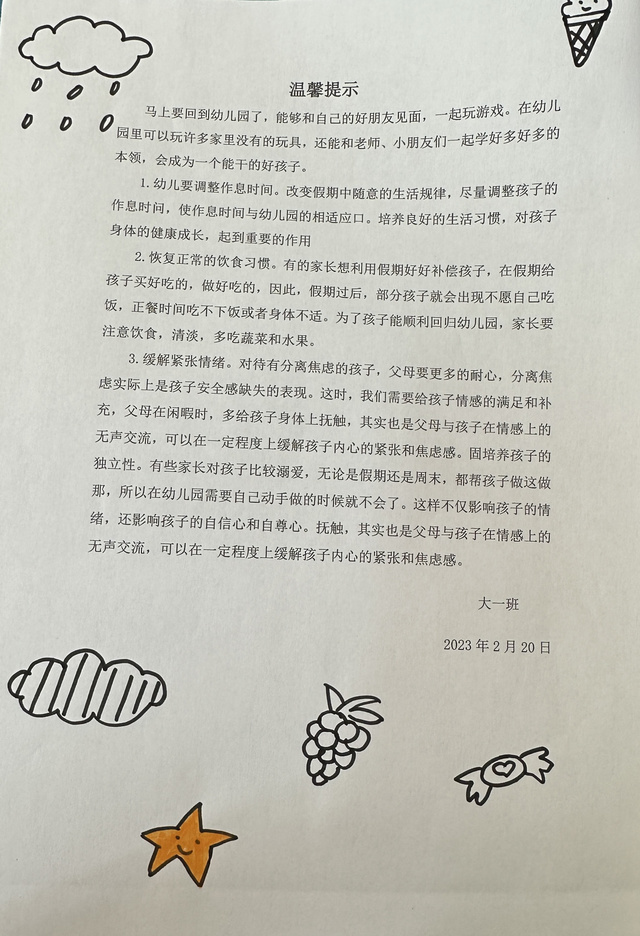 温馨提示
马上要回到幼儿园了，能够和自己的好朋友见面，一起玩游戏。在幼儿
园里可以玩许多家里没有的玩具，还能和老师、小朋友们一起学好多好多的
本领，会成为一个能干的好孩子。
1.幼儿要调整作息时间。改变假期中随意的生活规律，尽量调整孩子的
作息时间，使作息时间与幼儿园的相适应口。培养良好的生活习惯，对孩子
身体的健康成长，起到重要的作用
2.恢复正常的饮食习惯。有的家长想利用假期好好补偿孩子，在假期给
孩子买好吃的，做好吃的，因此，假期过后，部分孩子就会出现不愿自己吃
饭，正餐时间吃不下饭或者身体不适。为了孩子能顺利回归幼儿园，家长要
注意饮食，清淡，多吃蔬菜和水果。
3.缓解紧张情绪。对待有分离焦虑的孩子，父母要更多的耐心，分离焦
虑实际上是孩子安全感缺失的表现。这时，我们需要给孩子情感的满足和补
充，父母在闲暇时，多给孩子身体上抚触，其实也是父母与孩子在情感上的
无声交流，可以在一定程度上缓解孩子内心的紧张和焦虑感。固培养孩子的
独立性。有些家长对孩子比较溺爱，无论是假期还是周末，都帮孩子做这做
那，所以在幼儿园需要自己动手做的时候就不会了。这样不仅影响孩子的情
绪，还影响孩子的自信心和自尊心。抚触，其实也是父母与孩子在情感上的
无声交流，可以在一定程度上缓解孩子内心的紧张和焦虑感。
大一班
2023年2月20日